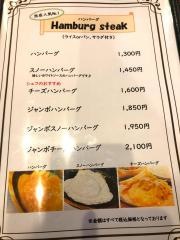 ハンバーグ
Hamburg steak
(ライスorパン、サラダ付き)
ハンバーグ 1,300円
スノーハンバーグ 1,450円
シェフのおすすめ
チーズハンバーグ 1,600円
ジャンボハンバーグ 1,850円
ジャンボスノーハンバーグ 1,950円
ジャンボチーズハンバーグ 2,100円
ハンバーグ スノーハンバーグ チーズハンバーグ
※金額はすべて税込価格となっております